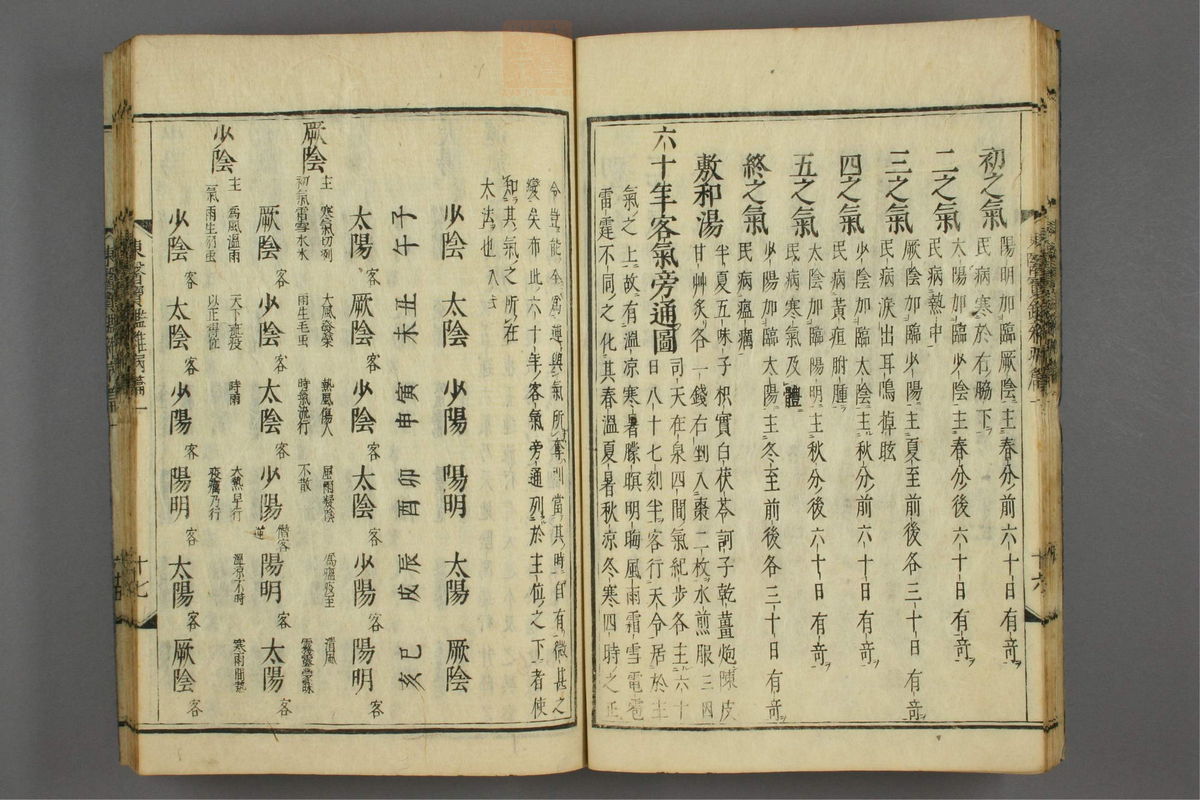 初之氣
陽明加臨厥陰主春分前六十日有竒
民病寒於右脇下
二之氣
太陽加臨少陰主春分後六十日有竒
民病熱中
三之氣
厥陰加臨少陽主夏至前後各三十日有竒
民病淚出耳鳴掉眩
四之氣
少陰加臨太陰主秋分前六十日有竒
民病黃疸胕腫
五之氣
太陰加臨陽明主秋分後六十日有竒
民病寒氣及體
終之氣
少陽加臨太陽主冬至前後各三十日有竒
民病瘟癘
敷和湯
半夏五味子枳實白茯苓訶子乾薑炮陳皮
甘艸炙各一錢右剉入棗二枚水煎服三因
六十年客氣旁通圖
司天在泉四間氣紀步各主六十
日八十七刻半客行天令居於主
氣之上故有溫凉寒暑朦暝明晦風雨霜雪電雹
雷霆不同之化其春溫夏暑秋凉冬寒四時之正
令豈能全爲運與氣所奪則當其時自有微甚之
變矣布此六十年客氣旁通列於主位之下者使
知其氣之所在
大法也入
少陰 太陰 少陽 陽明 太陽 厥陰
子午 丑未 寅申 卯酉 辰戌 巳亥
太陽客 厥陰客 少陰客 太陰客 少陽客 陽明客
厥陰
主
初氣
寒氣切冽
雷雪水氷
大風發榮
雨生毛虫
熱風傷人
時氣流行
不散
爲瘟疫至
清風
霧霿蒙昧
厥陰客 少陰客 太陰客 少陽 陽明客 太陽客
僭客
少陰
主
氣
爲風溫雨
雨生羽虫
天下疵疫
以正得位
時雨
大熱早行
疫癘乃行
溫凉不時
寒雨間熱
少陰客 太陰客 少陽客 陽明客 太陽客 厥陰客
東醫寶鑑雜病篇一
十六
十七